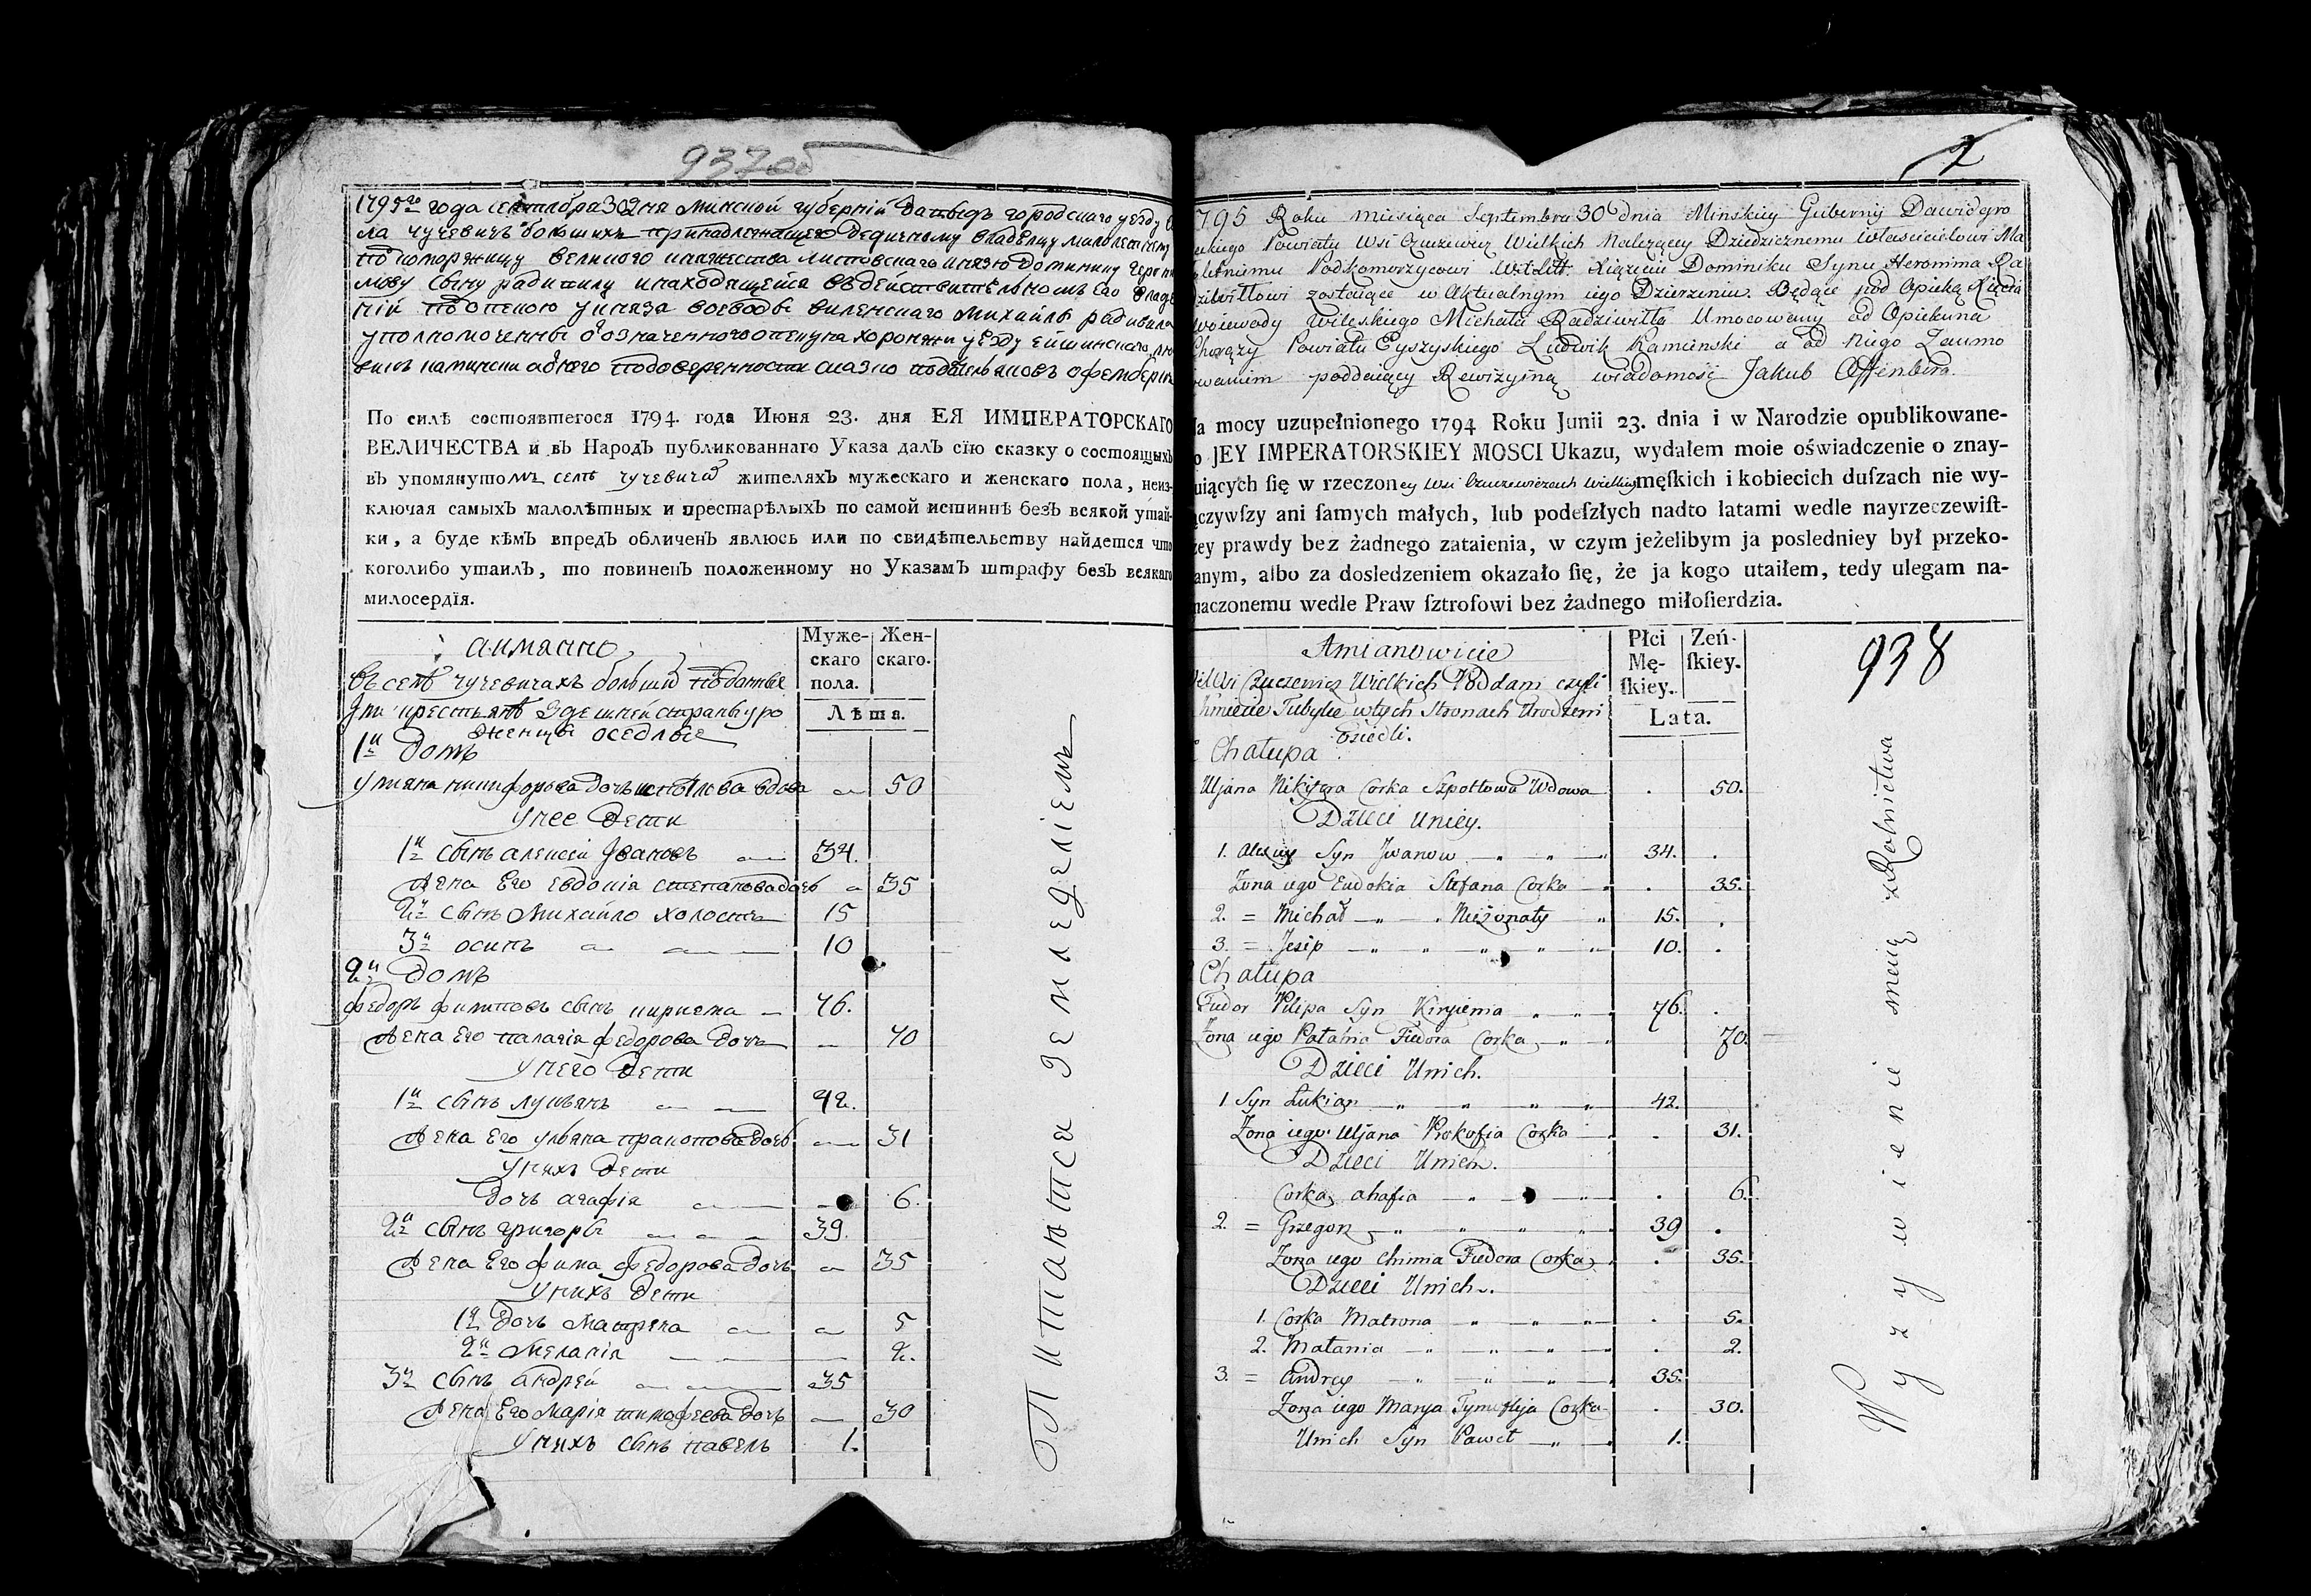 937об
1795го года сентября 30 дня Минской губернии давыдъ городскаго уезду
ла чучевичъ большихъ принадлежащего дедичному владелцу малолетнему
подкоморжицу великого княжества литовскаго князю доминику герони
мову сыну радивилу инаходящейся въдействительномъ его владе
нии подопекою у князя воеводы виленскаго михайлы радивила
уполномоченны означенного опекуна хоронжи уезду ейшишскаго
камински а отнего подоверенности сказко податель яковъ офемберхъ
По силѣ состоявшегося 1794. года Июня 23. дня ЕЯ ИМПЕРАТОРСКАГО
ВЕЛИЧЕСТВА и въ Народъ публикованнаго Указа далъ сїю сказку о состоящыхъ
въ упомянутомъ селе чучевича жителяхъ мужескаго и женскаго пола, неиз-
ключая самыхъ малолѣтныхъ и престарѣлыхъ по самой истиннѣ безъ всякой утай-
ки, а буде кѣмъ впредъ обличенъ явлюсь или по свидѣтельству найдется что
коголибо утаилъ, то повиненъ положенному по Указамъ штрафу безъ всякаго
милосердїя.
аимянно
Муже-
скаго
пола.
Жен-
скаго.
Лѣта.
Въселе чучевичахъ больши подданые
крестьяне здешней страны уро
женцы оседлые
1й домъ
ульяна никифорова дочь шпотлова вдова 50
унее дети
1й сынъ алексей Ивановъ 34.
жена Его евдокия степанова дочь 35
2й сынъ Михайло холостъ 15
3й осипъ 10
2й домъ
федоръ филиповъ сынъ кириеня 76.
жена Его палагия федорова дочь 70
унего дети
1й сынъ лукьянъ 42.
жена Его ульяна пракопова дочь 31
унихъ дети
дочь агафия 6.
2й сынъ григоры 39.
жена Его фима федорова дочь 35
унихъ дети
1я дочь матрена 5
2я Мелания 2.
3й сынъ андрей 35
жена Его мария тимофеева дочь 30
унихъ сынъ павелъ 1.
Питаются земледелiемъ
2
1795 Roku miesiąca Septembra 30 dnia Minskiey Gubernij Dawidgro
dzkiego Powiatu Wsi Czuczewicz Wielkich Należącey Dziedzicznemu właścicielowi Ma
łoletniemu Podkomorzycowi W. X. Litt. Xiążęciu Dominiku Synu Heronima Ra
dziwiłłowi zostaiące w Aktualnym iego Dzierżeniu. Będące pod Opieką Xięcia
Woiewody Wileńskiego Michała Radziwiłła Umocowany od Opiekuna
Chorąży Powiatu Eyszyskiego Ludwik Kamienski a od niego Zaumo
cowaniem poddaiący Rewizyiną wiadomość Jakub Offenberg.
Na mocy uzupełnionego 1794 Roku Junii 23. dnia i w Narodzie opublikowane-
go JEY IMPERATORSKIEY MOSCI Ukazu, wydałem moie oświadczenie o znay-
duiących ſię w rzeczoney Wsi Czuczewiczach Wielkich męſkich i kobiecich duſzach nie wy-
łączywſzy ani ſamych małych, lub podeſzłych nadto latami wedle nayrzeczewiſt-
ſzey prawdy bez żadnego zataienia, w czym jeżelibym ja posledniey był przeko-
nanym, albo za dosledzeniem okazało ſię, że ja kogo utaiłem, tedy ulegam na-
znaczonemu wedle Praw ſztrofowi bez żadnego miłoſierdzia.
Amianowicie
Płci
Mę-
ſkiey.
Zeń-
ſkiey.
Lata.
We Wsi Czuczewicz Wielkich Poddani czyli
Kmiecie Tubylce wtych Stronach Urodzeni
Osiedli.
Chałupa
Uljana Nikifora Corka Szpotłowa Wdowa 50.
Dzieci Uniey.
1. Alexiey Syn Jwanow 34.
Zona iego Eudokia Stefana Corka 35.
2. = Michał Nieżonaty 15.
3. = Jesip 10.
Chałupa
Fiedor Pilipa Syn Kiryienia 76.
Zona iego Pałahia Fiedora Corka 70.
Dzieci Unich.
1 Syn Łukian 42.
Zona iego Uljana Prokofia Corka 31.
Dzieci Unich.
Corka ahafia 6.
2. = Grzegorz 39
Zona iego Chimia Fiedora Corka 35.
Dzieci Unich.
1. Corka Matrona 5.
2. Małania 2.
3. = Andrey 35.
Zona iego Marya Tymofieja Corka 30.
Unich Syn Paweł 1.
938
Wyzywienie maią z Rolnictwa